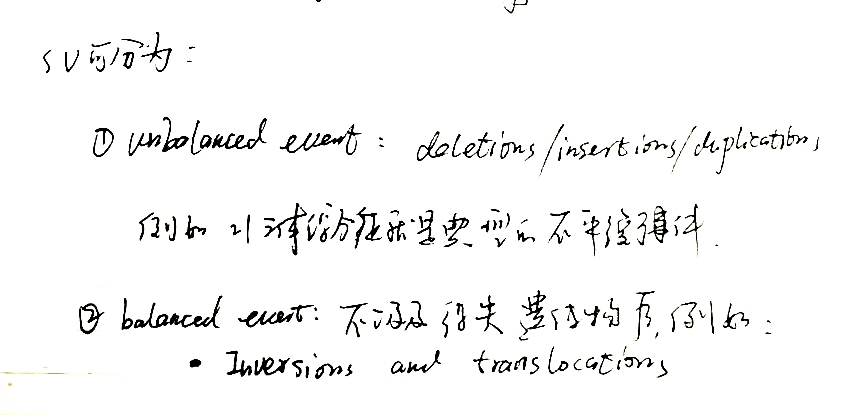 SV可分为：
① unbalanced event： deletions/insertions/duplications
例如 21三体综合征就是典型的不平衡事件.
② balanced event： 不涉及得失遗传物质,例如：
• Inversions and translocations